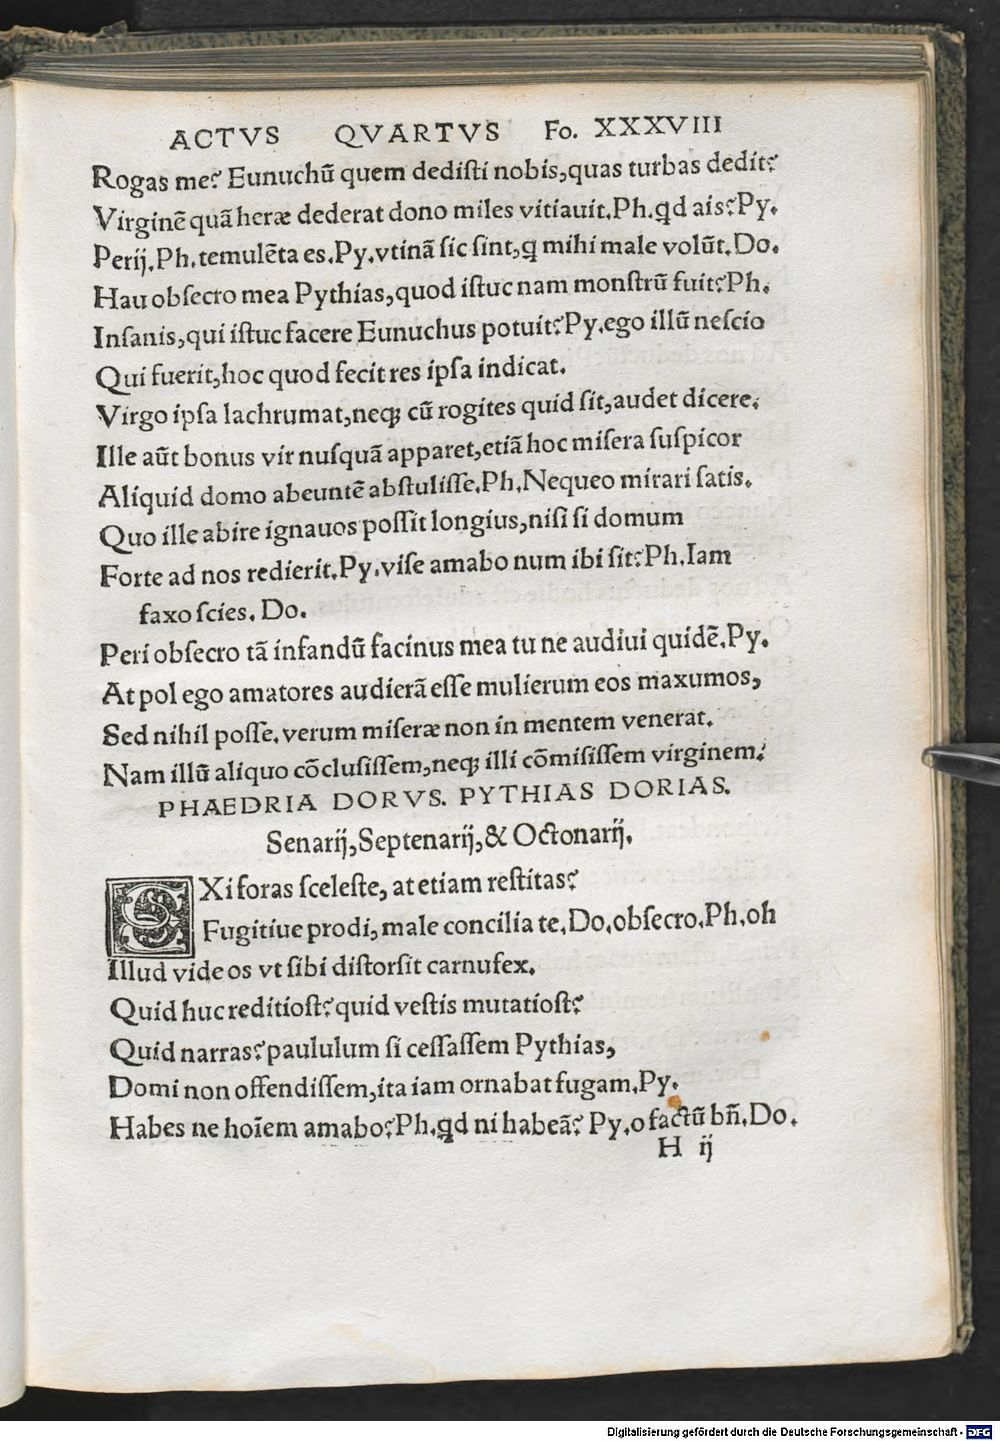 ACTVS QVARTVS Fo. XXXVIII
Rogas me? Eunuchū quem dediſti nobis, quas turbas dedit?
Virginē quā heræ dederat dono miles vitiauit. Ph. qd ais? Py.
Perij. Ph. temulēta es. Py. vtinā ſic ſint, q mihi male volūt. Do.
Hau obſecro mea Pythias, quod iſtuc nam monſtrū fuit? Ph.
Inſanis, qui iſtuc facere Eunuchus potuit? Py. ego illū neſcio
Qui fuerit, hoc quod fecit res ipſa indicat.
Virgo ipſa lachrumat, neqꝫ cū rogites quid ſit, audet dicere.
Ille aūt bonus vir nuſquā apparet, etiā hoc miſera ſuſpicor
Aliquid domo abeuntē abſtuliſſe. Ph. Nequeo mirari ſatis.
Quo ille abire ignauos poſſit longius, niſi ſi domum
Forte ad nos redierit. Py. viſe amabo num ibi ſit? Ph. Iam
faxo ſcies. Do.
Peri obſecro tā infandū facinus mea tu ne audiui quidē. Py.
At pol ego amatores audierā eſſe mulierum eos maxumos,
Sed nihil poſſe. verum miſeræ non in mentem venerat.
Nam illū aliquo cōcluſiſſem, neqꝫ illi cōmiſiſſem virginem.
PHAEDRIA DORVS. PYTHIAS DORIAS.
Senarij, Septenarij, & Octonarij.
EXi foras ſceleſte, at etiam reſtitas?
Fugitiue prodi, male concilia te. Do. obſecro. Ph. oh
Illud vide os vt ſibi diſtorſit carnufex.
Quid huc reditioſt? quid veſtis mutatioſt?
Quid narras? paululum ſi ceſſaſſem Pythias,
Domi non offendiſſem, ita iam ornabat fugam. Py.
Habes ne hoīem amabo? Ph. qd ni habeā? Py. o factū bn̄. Do.
H ij
Digitalisierung gefördert durch die Deutsche Forschungsgemeinschaft - DFG